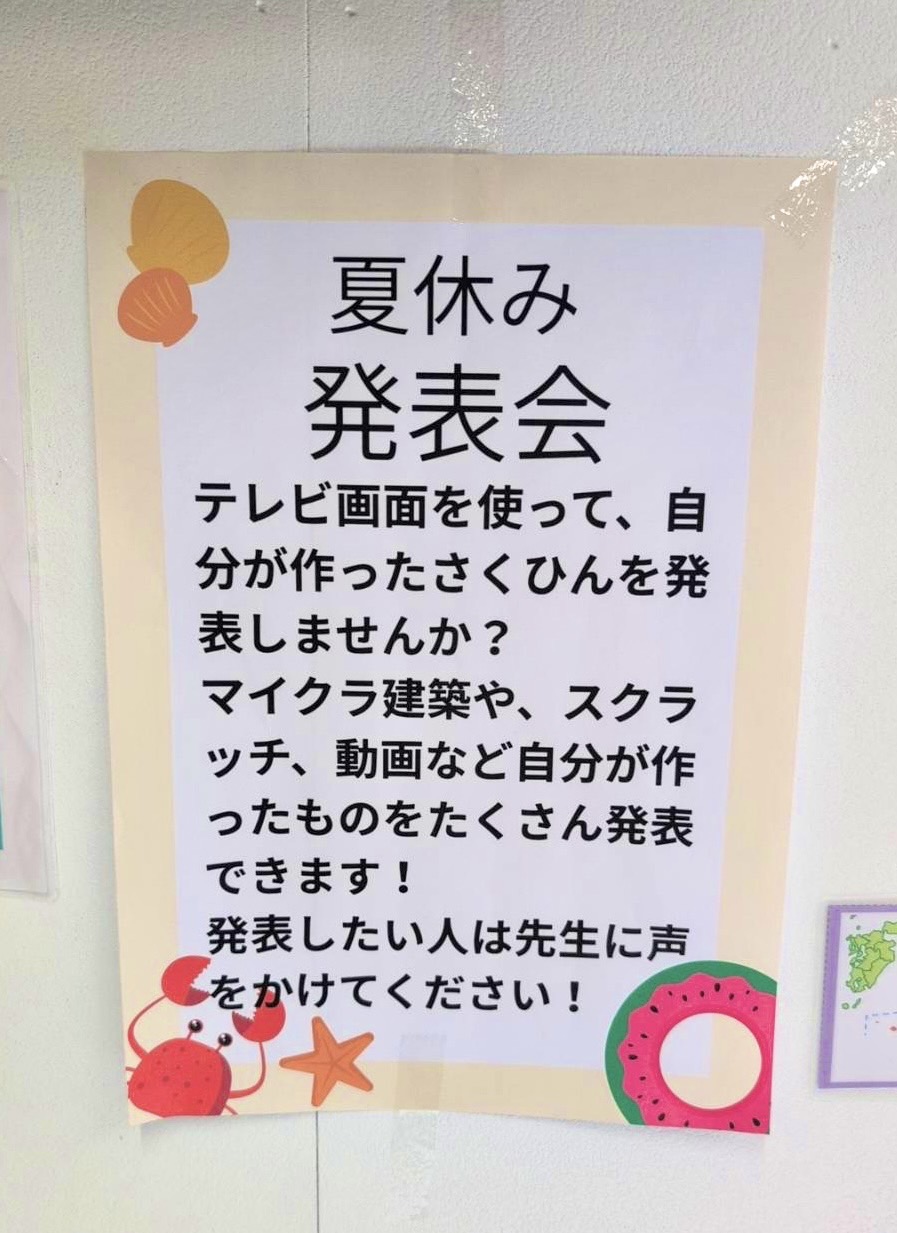 夏休み
発表会
テレビ画面を使って、自
分が作ったさくひんを発
表しませんか？
マイクラ建築や、スクラ
ッチ、動画など自分が作
ったものをたくさん発表
できます！
発表したい人は先生に声
をかけてください！